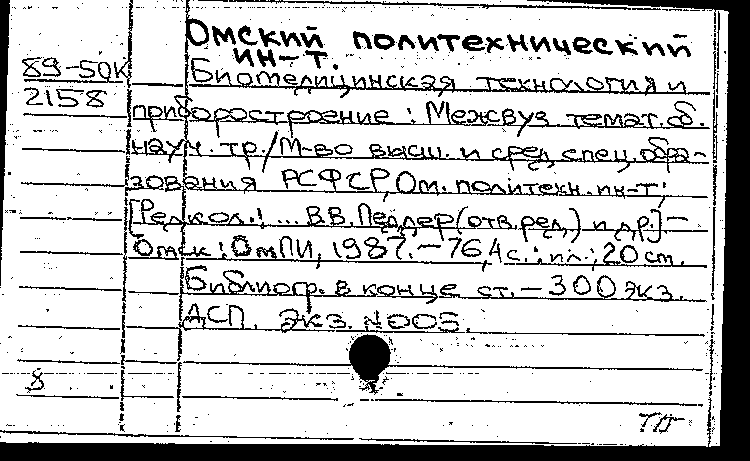 Омский политехнический
ин-т.
89-50К
Биомедицинская технология и
2158
приборостроение : Межвуз. темат. сб.
науч. тр./М-во высш. и сред. спец. обра-
зования РСФСР, Ом. политехн. ин-т;
[Редкол.: ... В.В. Педдер (отв. ред.) и др.] –
Омск : ОмПИ, 1987. – 76,4 с. : ил.; 20 см.
Библиогр. в конце ст. – 300 экз.
ДСП. Экз. №005.
8